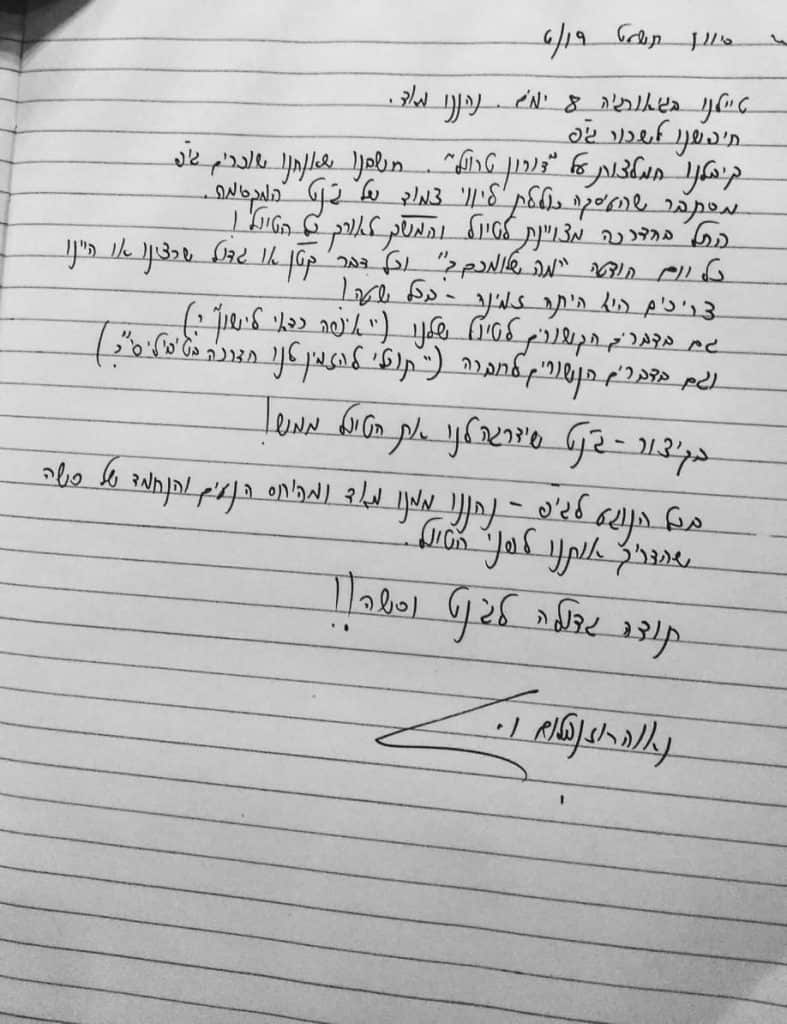 סיוון תשע"ט 6/19
טיילנו בגאורגיה 8 ימים. נהננו מאוד.
חיפשנו לשכור ג'יפ
קיבלנו המלצות על "דורון טרוול". חשבנו שאנחנו שוכרים ג'יפ
מסתבר שהעסקה כוללת ליווי צמוד של ג'נט המקסימה.
החל בהדרכה מצויינת לטיול והמשך לאורך כל הטיול!
כל יום הודעה "מה שלומכם?" וכל דבר קטן או גדול שרצינו או היינו
צריכים היא היתה זמינה - בכל שעה!
גם בדברים הקשורים לטיול שלנו ("איפה כדאי לישון"?)
וגם בדברים הקשורים לחברה ("תוכלי להזמין לנו הדרכה בטביליסי"?)
בקיצור - ג'נט שידרגה לנו את הטיול ממש!
בכל הנוגע לג'יפ - נהננו ממנו מאוד ומהיחס הנעים והנחמד של סשה
שהדריך אותנו לפני הטיול.
תודה גדולה לג'נט וסשה!!